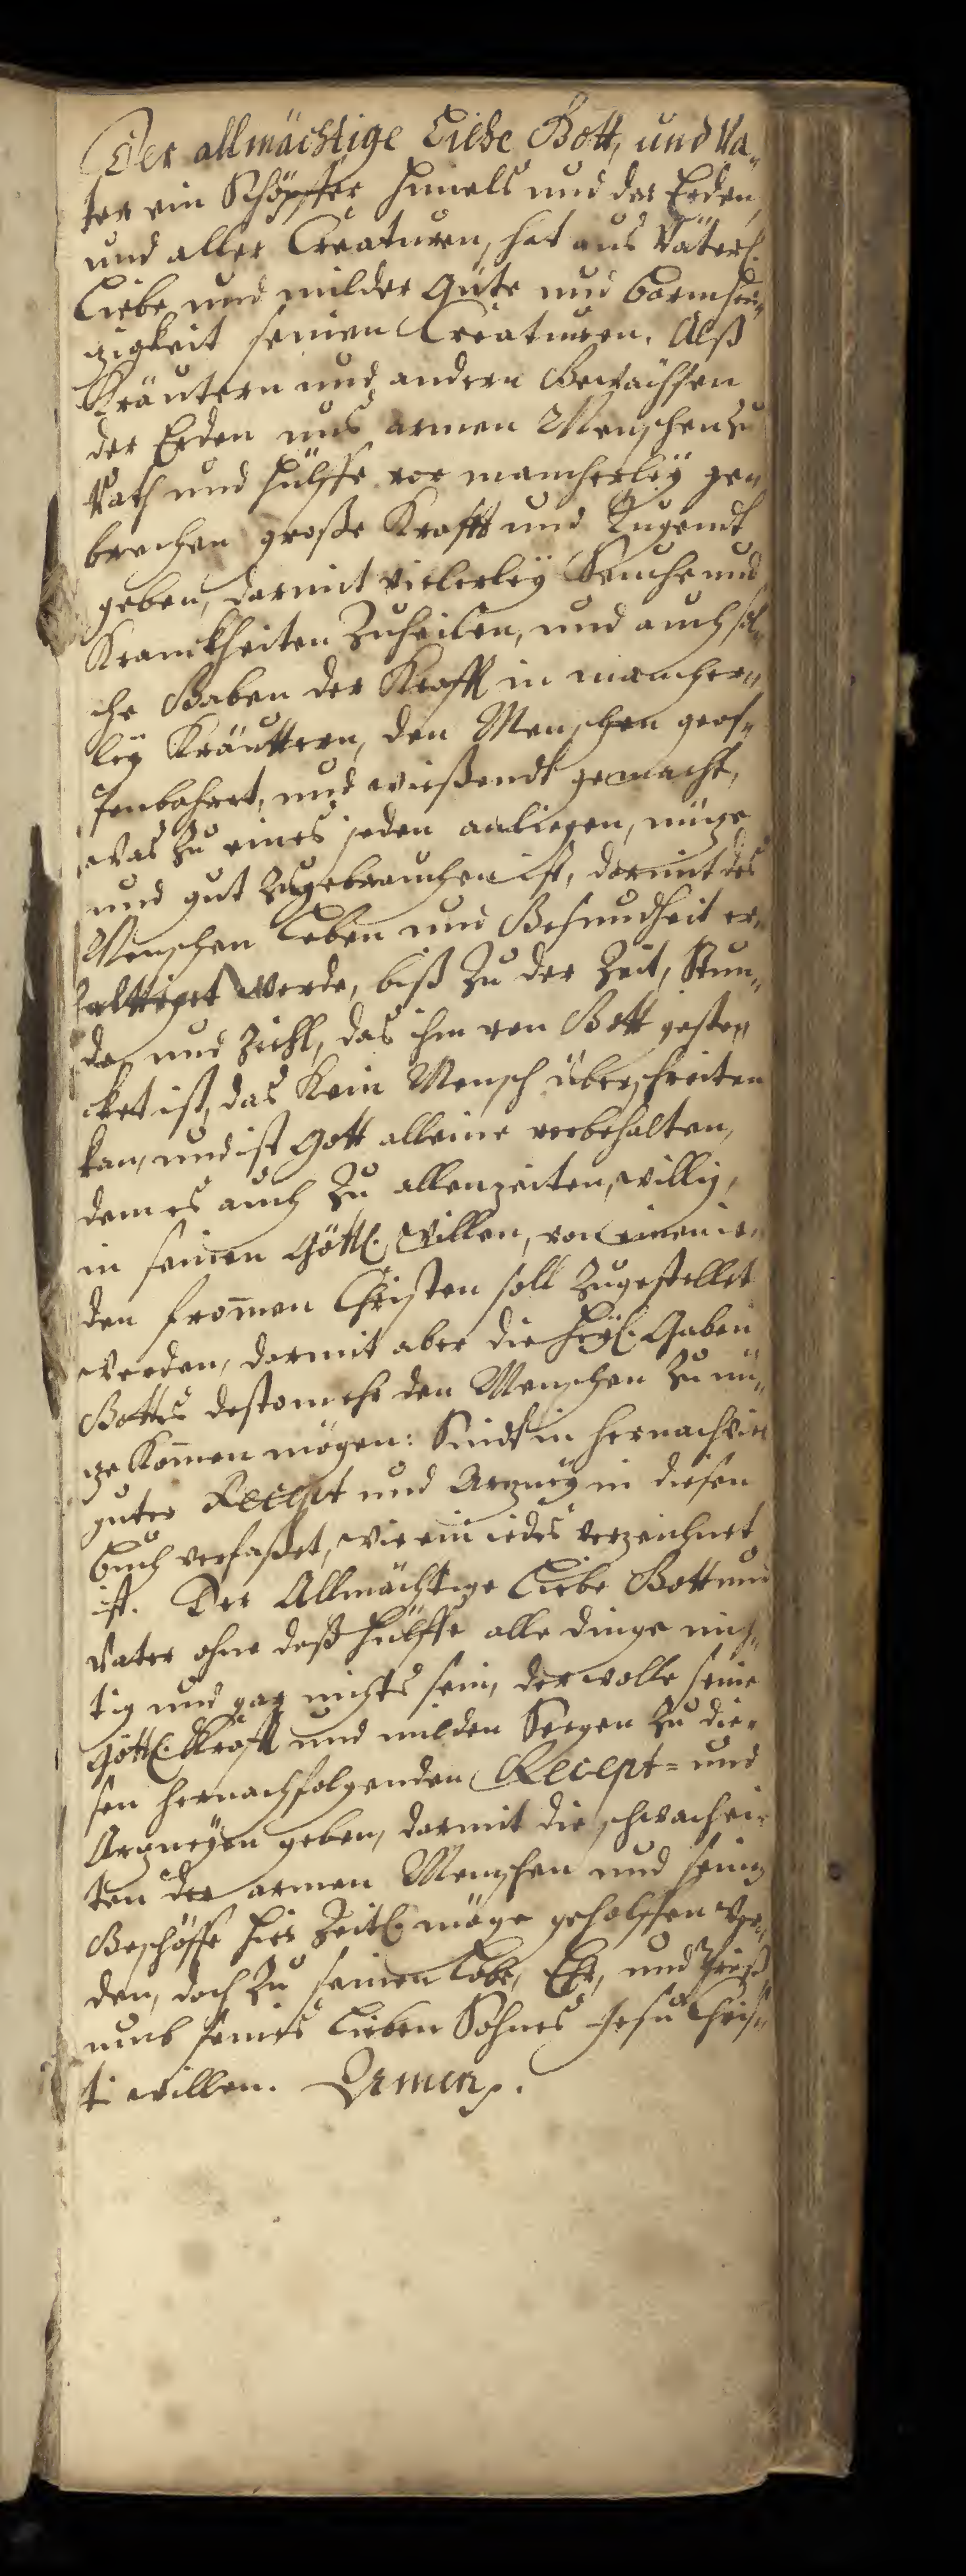 Der allmächtige Liebe Gott, und Va„
ter ein Schöpffer Himels und der Erden,
und aller Creaturen, hat aus Väterl.
Liebe und milder Güte und barmher„
zigkeit seinen Creaturen. Alß
Kräutern und andern Gewächsen
der Erden uns armen Menschen zu
Rath und hülffe vor mancherleÿ ge„
brechen große Krafft und Tugendt
geben, darmit vielerleÿ Seuche und
Kranckheiten zuheilen, und auch sol„
che Gaben der Krafft in mancher„
leÿ Kräuttern, den Menschen geof„
fenbahret, und wießendt gemacht,
was zu eines jeden anliegen, nüze
und gut zugebrauchen ist, darmit des
Menschen Leben und Gesundheit er„
halten werde, biß zu der Zeit, Stun„
de, und Ziehl, das ihm von Gott geste„
cket ist, das kein Mensch überschreiten
kan, und ist Gott alleine vorbehalten,
dem es auch zu allenzeiten, willig,
in seinen Göttl. Willen, von einem ie„
den from̄en Christen soll zugestellet
werden, darmit aber die Gaben
Gottes destomehr den Menschen zu nü„
ze kom̄en mögen: Sindt in hernach viel
guter Recept und Arzneÿ in diesen
buch verfaßet, wie ein iedes verzeichnet
ist. Der Allmächtige Liebe Gott und
Vater ohne deß hülffe alle dinge nich„
tig und gar nichts sein, der wolle seine
Göttl. Krafft und milden Seegen zu die„
sen hernachfolgenden Recept= und
Arzneÿen geben, darmit die schwachei„
ten der armen Menschen und seinen
Geschöffe hier Zeitl. möge geholffen wer„
den, doch zu seinen Lobe, Ehr, und Preiß
umb seines Lieben Sohnes Jesu Chris„
ti willen. Amen.